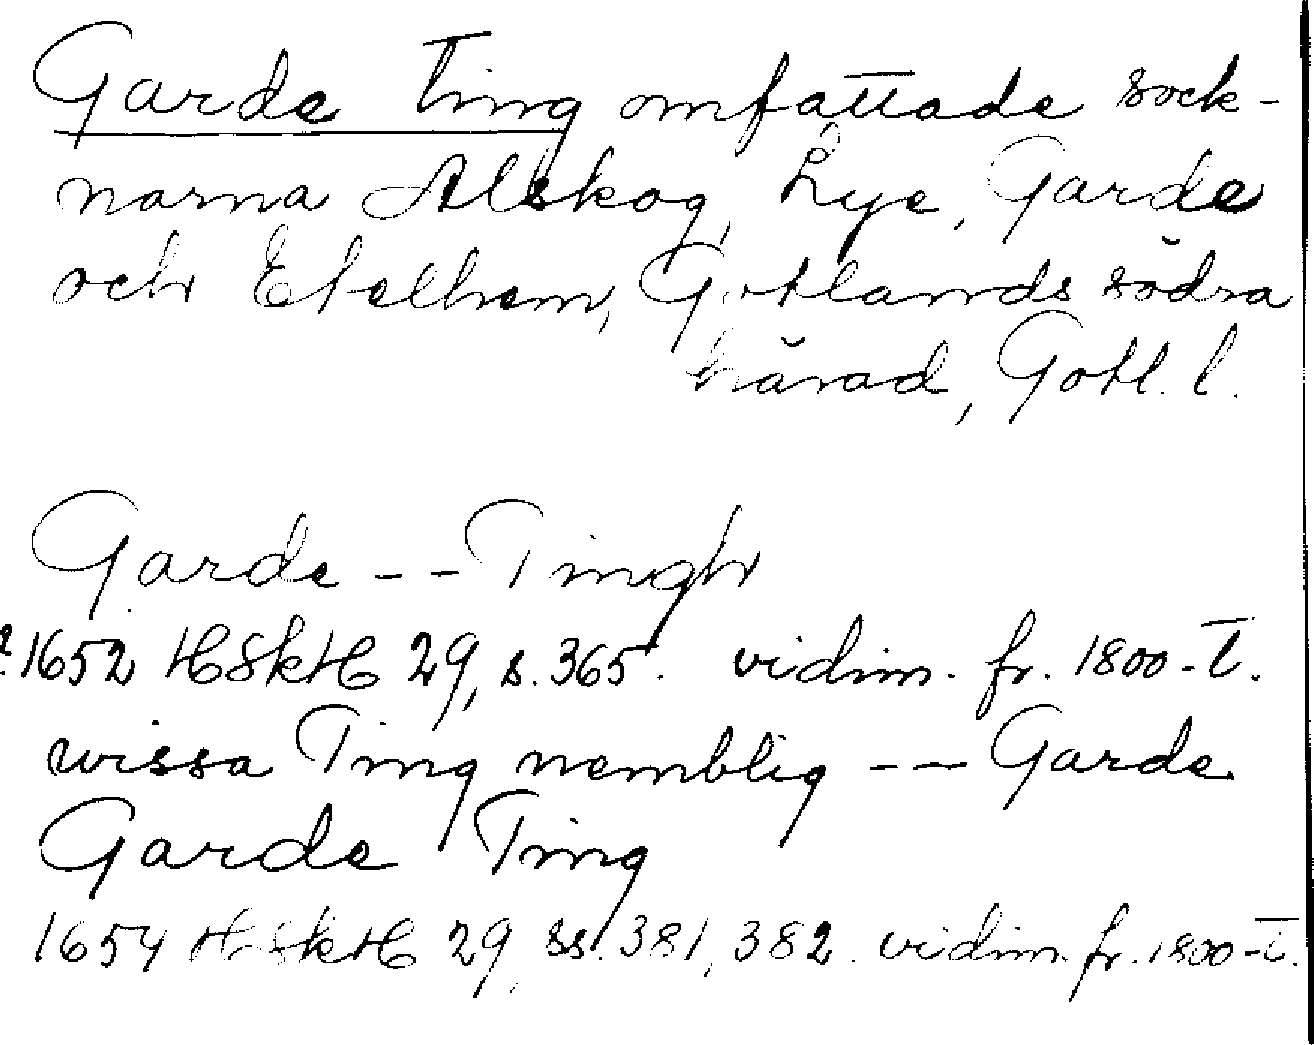 Garde Ting omfattade sock-
narna Alskog, Lye, Garde
och Etelhem, Gotlands södra
härad, Gotl. l.
Garde -- Tingh
1652 HSkH 29, s. 365. vidim. fr. 1800-t.
wissa Ting nemblig -- Garde
Garde Ting
1654 HSkH 29, ss. 381, 382. vidim. fr. 1800-t.